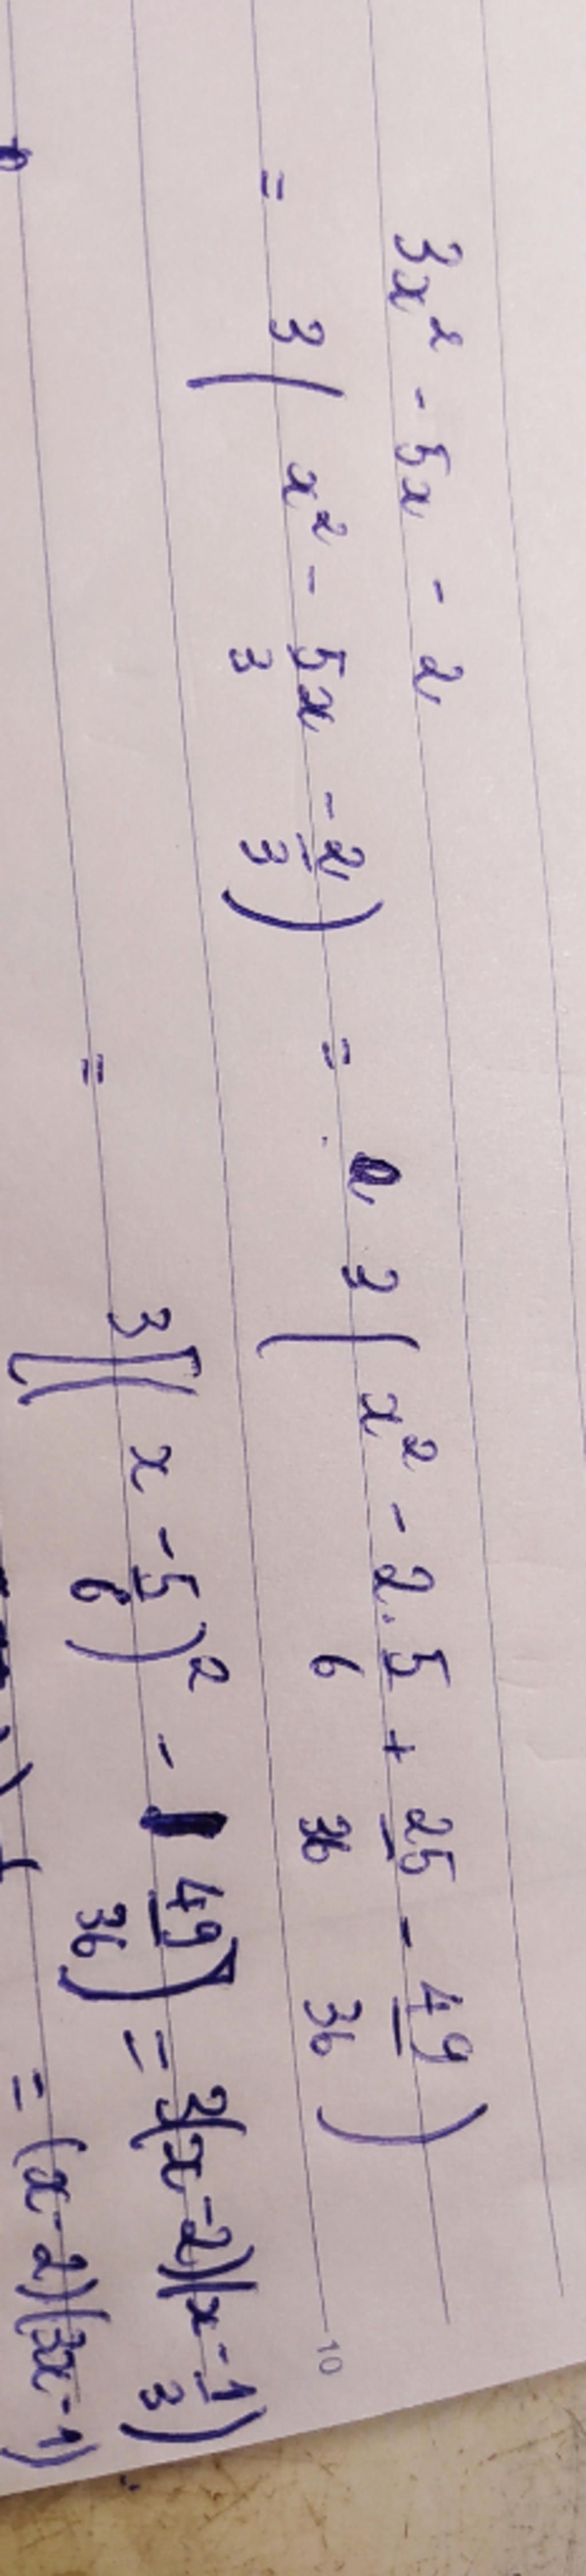 3x² - 5x - 2
= 3 ( x² - 5/3 x - 2/3 ) = 3 ( x² - 2 . 5/6 + 25/36 - 49/36 )
= 3 [ ( x - 5/6 )² - 49/36 ] = 3(x - 2)(x - 1/3)
= (x - 2)(3x - 1)
10